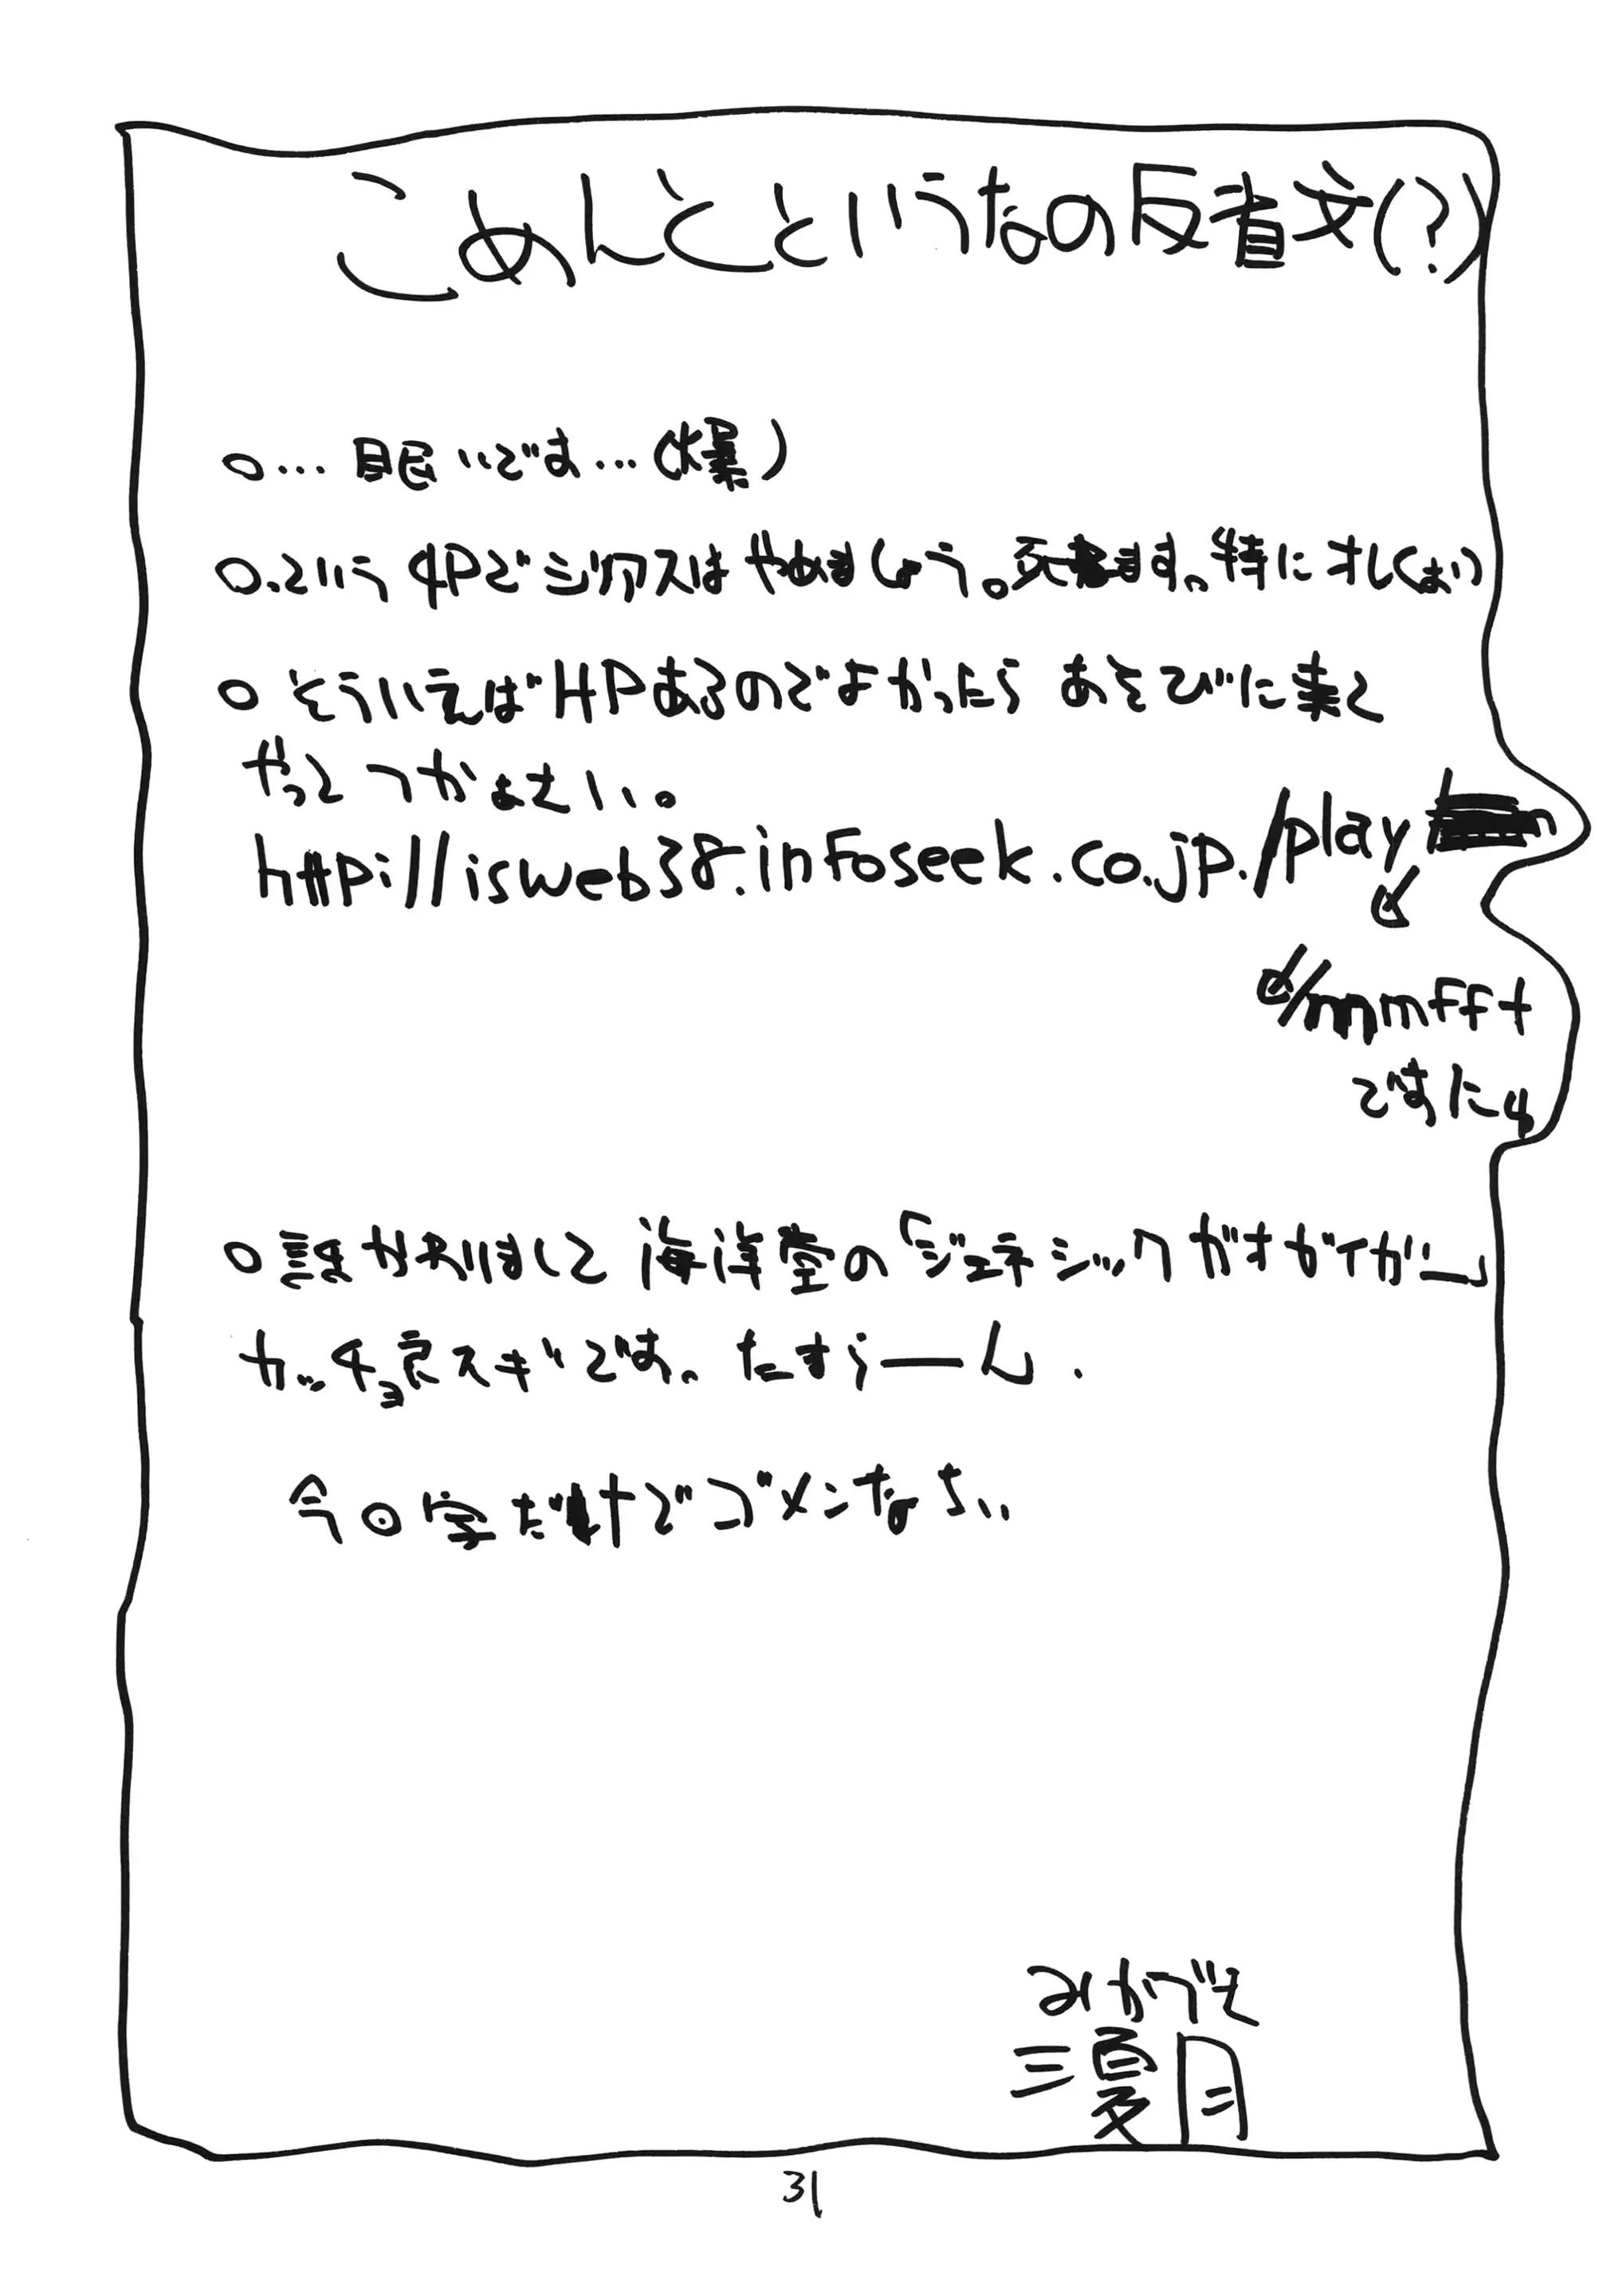 こめんとというなの反省文(?)
○…眠いです…(爆)
○.という中Pでミジクスはやめましょう。死にます。特にオレ(よい)
○そういえばHPあるのでよかったらあそびに来て
やってつかぁさい。
http://isweb38.infoseek.co.jp./play
/mmfft
ですに4
○話かわりまして海洋堂の「ジェネシックガオガイガー」
カッチョ良スギです。たまらーん.
今回字だけでゴメンなさい
みかづき
三夏月
31